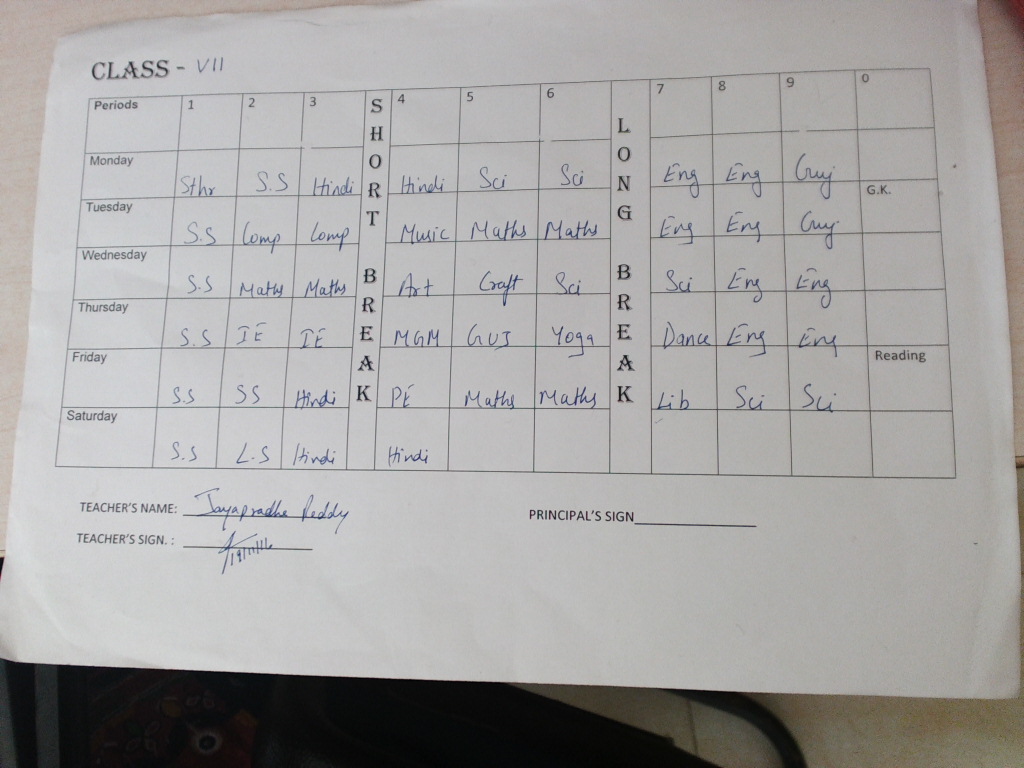 CLASS - VII
Periods 1 2 3 4 5 6 7 8 9 0
SHORT BREAK
LONG BREAK
Monday Sthr S.S Hindi Hindi Sci Sci Eng Eng Guj
Tuesday S.S Comp Comp Music Maths Maths Eng Eng Guj G.K.
Wednesday S.S Maths Maths Art Craft Sci Sci Eng Eng
Thursday S.S IE IE MGM GUJ Yoga Dance Eng Eng
Friday S.S SS Hindi PE Maths Maths Lib Sci Sci Reading
Saturday S.S L.S Hindi Hindi
TEACHER'S NAME: Jayapradha Reddy
PRINCIPAL'S SIGN
TEACHER'S SIGN. :